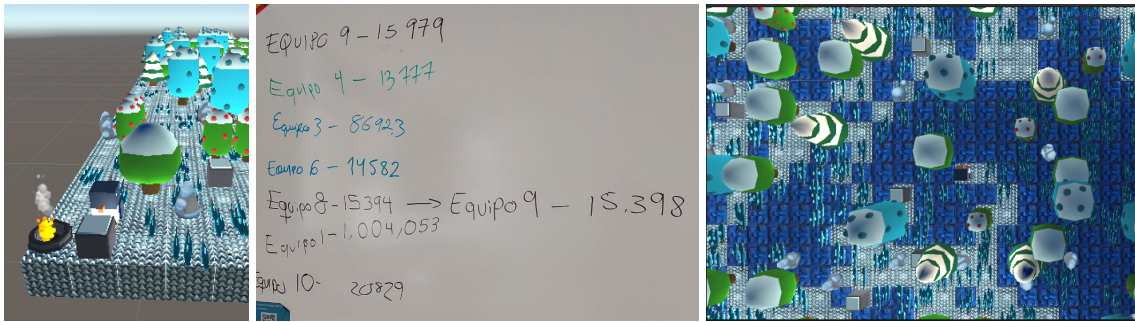 Equipo 9 - 15 979
Equipo 4 - 13777
Equipo 3 - 86923
Equipo 6 - 14582
Equipo 8 - 15394 → Equipo 9 - 15.398
Equipo 1 - 1,004,053
Equipo 10 - 20829